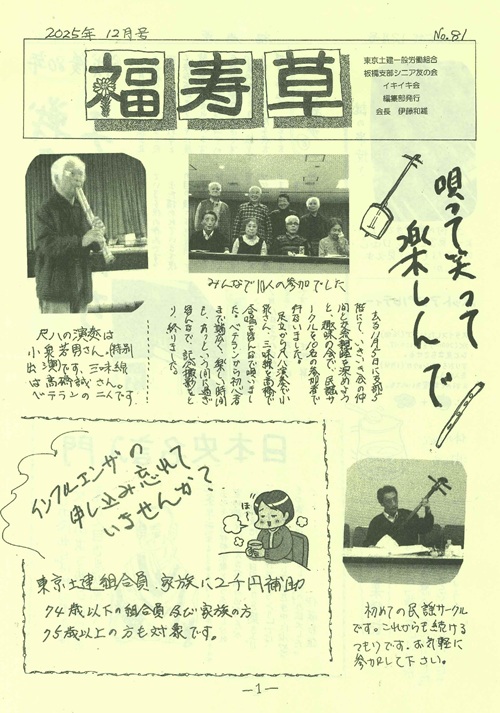 2025年 12月号
No.81
福寿草
東京土建一般労働組合
板橋支部シニア友の会
イキイキ会
編集部発行
会長 伊藤和誠
唄って笑って
楽しんで
みんなで10人の参加でした
尺八の演奏は
小泉芳男さん。特別
出演です。三味線
は高橋誠さん。
ベテランの二人です
去る11月5日に支部5
階にて、いきいき会の仲
間の交流親睦を深めよう
と、趣味の会で、民謡サ
ークルを10名の参加者で
行ないました。
足立から尺八演奏で小
泉さん、三味線を高橋で
合唱を皆んなで唄いまし
た。ベテランから初心者
まで幅広く、楽しい時間
と、あっという間に過ぎ
皆んなで、記念撮影をと
り、終りました。
インフルエンザの
申し込み忘れて
いませんか?
ほ〜
東京土建組合員、家族に2千円補助
74歳以下の組合員及び家族の方
75歳以上の方も対象です。
初めての民謡サークル
です。これからも続ける
つもりです。お気軽に
参加して下さい。
—1—